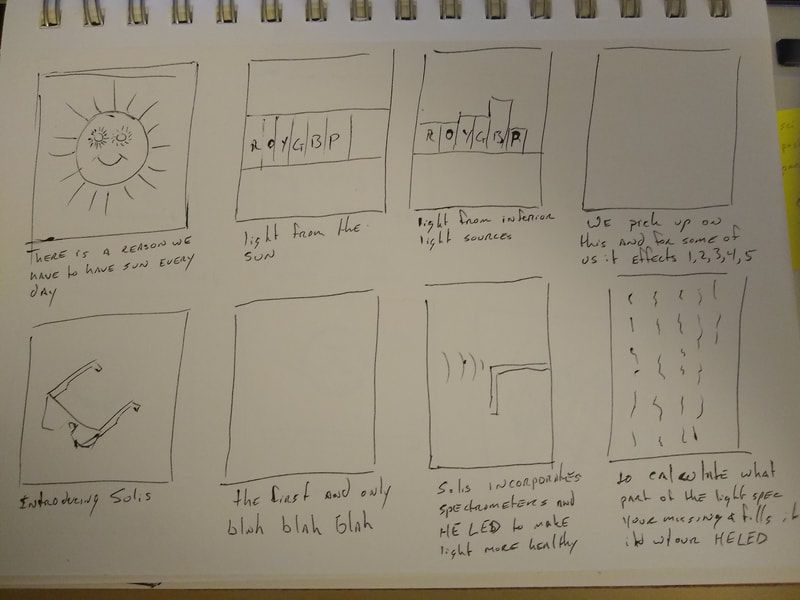 THERE IS A REASON WE
HAVE TO HAVE SUN EVERY
DAY
R O Y G B P
light from the
SUN
R O Y G B P
light from inferior
light sources
WE pick up on
this and for some of
us it effects 1,2,3,4,5
INTRODUCING Solis
the first and only
blah blah blah
Solis INCORPORATES
spectrometers and
HE LED to make
light more healthy
to calculate what
part of the light spec
your missing & fills it
w/our HELED